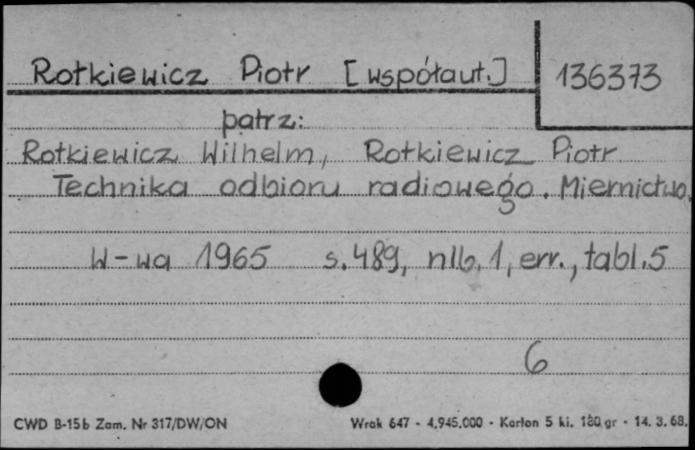 Rotkiewicz Piotr [współaut.] 136373
patrz:
Rotkiewicz Wilhelm, Rotkiewicz Piotr
Technika odbioru radiowego. Miernictwo.
W-wa 1965 s. 489, nlb. 1, err., tabl. 5
6
CWD B-15b Zam. Nr 317/DW/ON Wrak 647 - 4.945.000 - Karton 5 kl. 180 gr - 14. 3. 68.